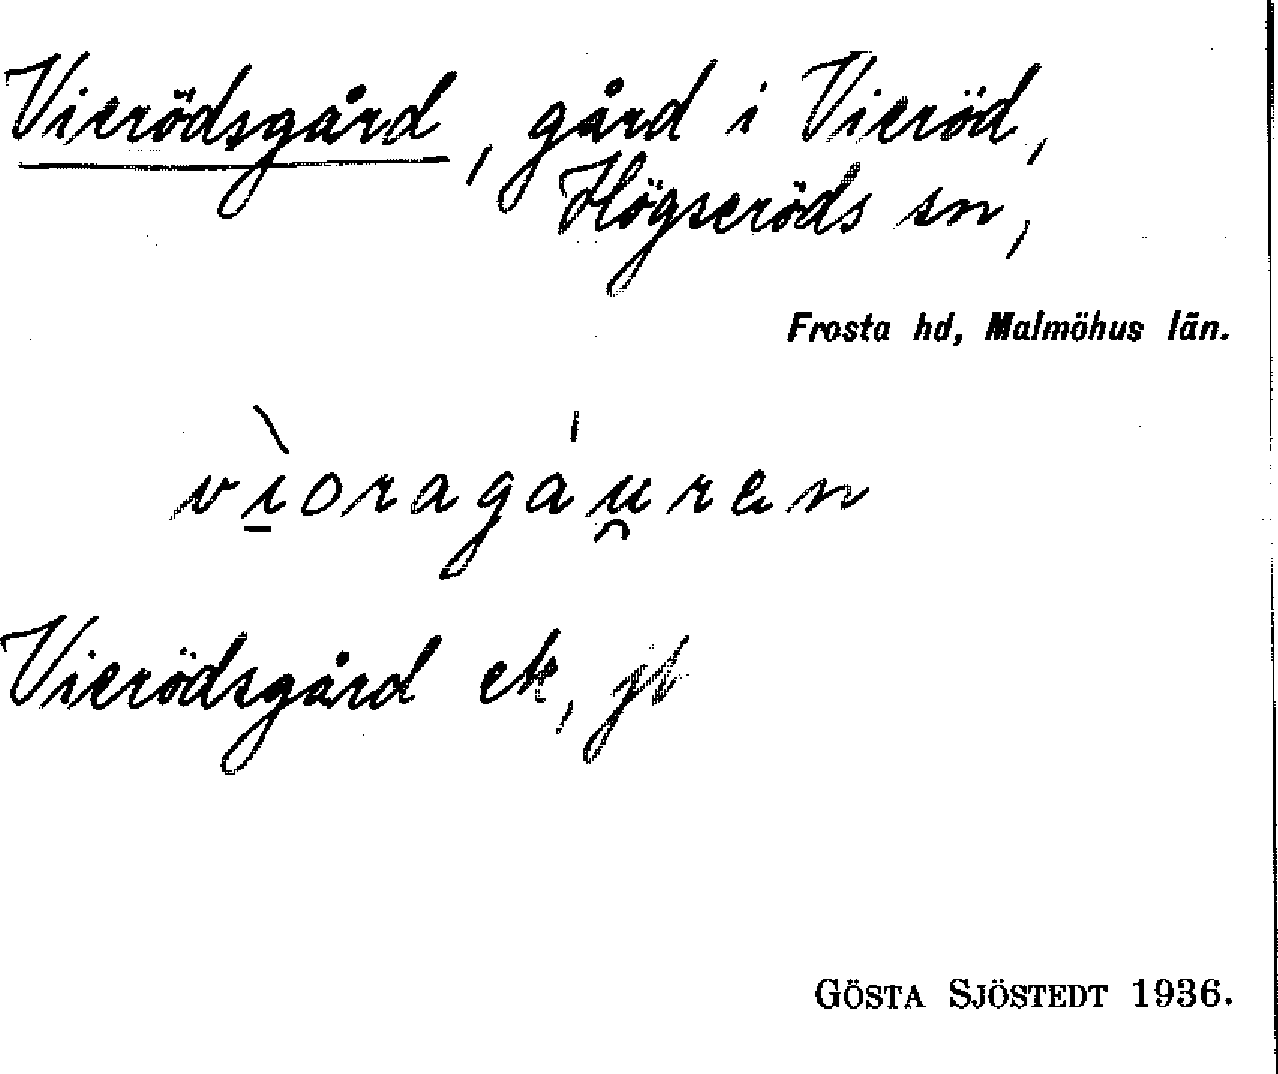 Vierödsgård, gård i Vieröd,
Högseröds sn,
Frosta hd, Malmöhus län.
vì̱oragáu̯ren
Vierödsgård ek, jb
GÖSTA SJÖSTEDT 1936.